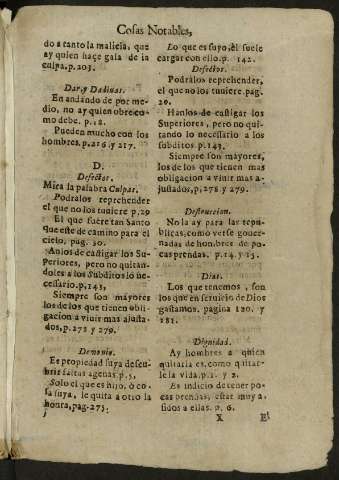 Cosas Notables,
do a tanto la malicia, que
ay quien haçe gala de la
culpa.p.203.
Dar,y Dadivas.
En andando de por me-
dio, no ay quien obre co-
mo debe. p.18.
Pueden mucho con los
hombres.p.216 y 217.
D.
Defectos.
Mira la palabra Culpas.
Podralos reprehender
el que no los tuuiere p.29
El que fuere tan Santo
que este de camino para el
cielo, pag. 30.
Anlos de castigar los Su-
periores, pero no quitan-
doles a los Subditos lo ne-
cessario.p.143,
Siempre son mayores
los de los que tienen obli-
gacion a viuir mas ajusta-
dos,p.278 y 279.
Demonio.
Es propiedad suya descu-
brir faltas agenas.p.5,
Solo el que es hijo, ò co-
sa suya, le quita a otro la
honra,pag.273.
Lo que es suyo,èl suele
cargar con ello.p. 142.
Defectos.
Podràlos reprehender,
el que no los tuuiere.pag.
29.
Hanlos de castigar los
Superiores, pero no qui-
tando lo necessario a los
subditos p.143.
Siempre son mayores,
los de los que tienen mas
obligacion a viuir mas a-
justados,p,278 y 279.
Destruccion.
No la ay para las repu-
blicas,como verse gouer-
nadas de hombres de po-
cas prendas. p.14.y 15.
Dias.
Los que tenemos, son
los que en seruicio de Dios
gastamos, pagina 120. y
181.
Dignidad.
Ay hombres a quien
quitarla es,como quitar-
le la vida.p.1. y 2.
Es indicio de tener po-
cas prendas, estar muy a-
sidos a ellas. p. 6.
X El